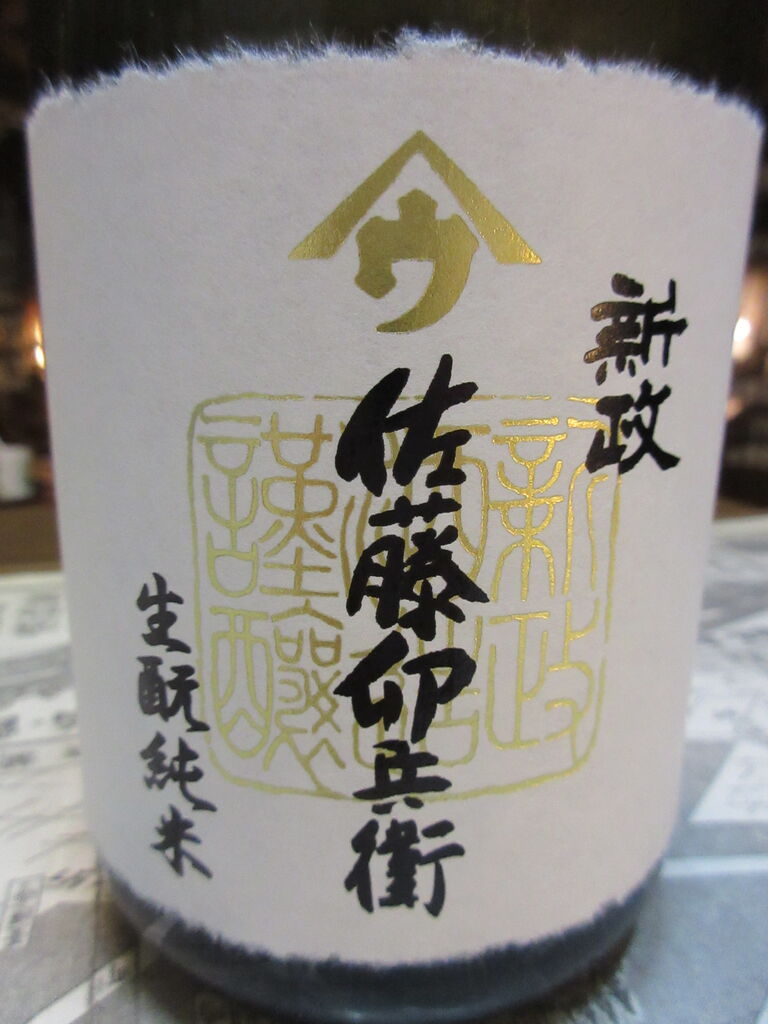 ウ
新政
佐藤卯兵衛
生酛純米
新政
謹醸